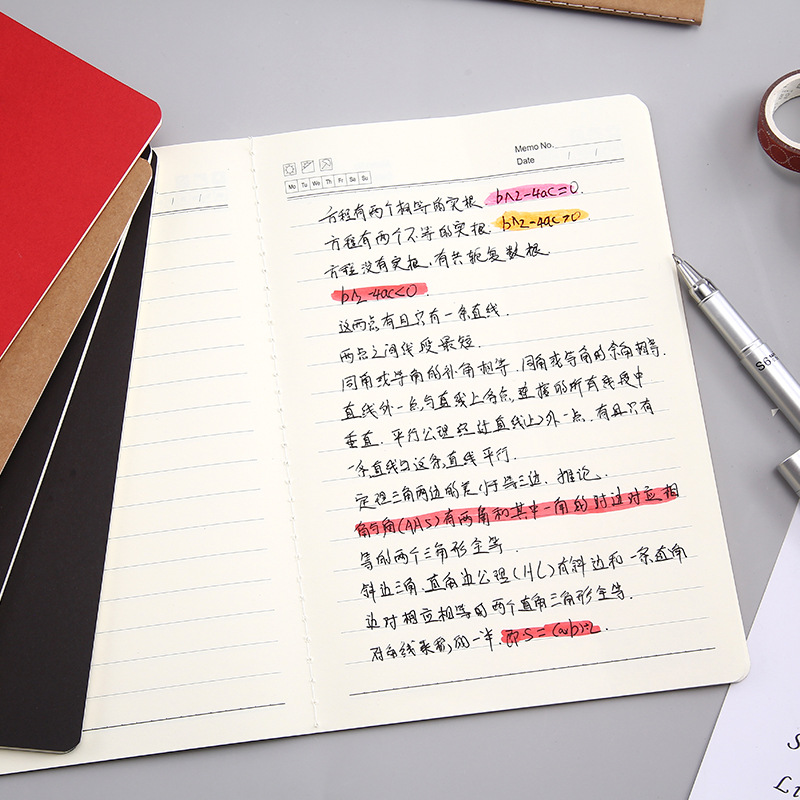 Memo No.
Date / /
Mo Tu We Th Fr Sa Su
方程有两个相等的实根 b^2-4ac=0.
方程有两个不等的实根. b^2-4ac>0.
方程没有实根,有共轭复数根
b^2-4ac<0.
这两点有且只有一条直线.
两点之间线段最短.
同角或等角的补角相等.同角或等角的余角相等.
直线外一点与直线上各点,连接的所有线段中
垂直.平行公理 经过直线上外一点.有且只有
一条直线与这条直线平行.
定理三角两边的差小于第三边.推论.
角角(AAS)有两角和其中一角的对边对应相
等的两个三角形全等.
斜边三角.直角边公理(HL)有斜边和一条直角
边对相应相等的两个直角三角形全等.
对角线乘积的一半.即S=(ab)÷2.
/ /